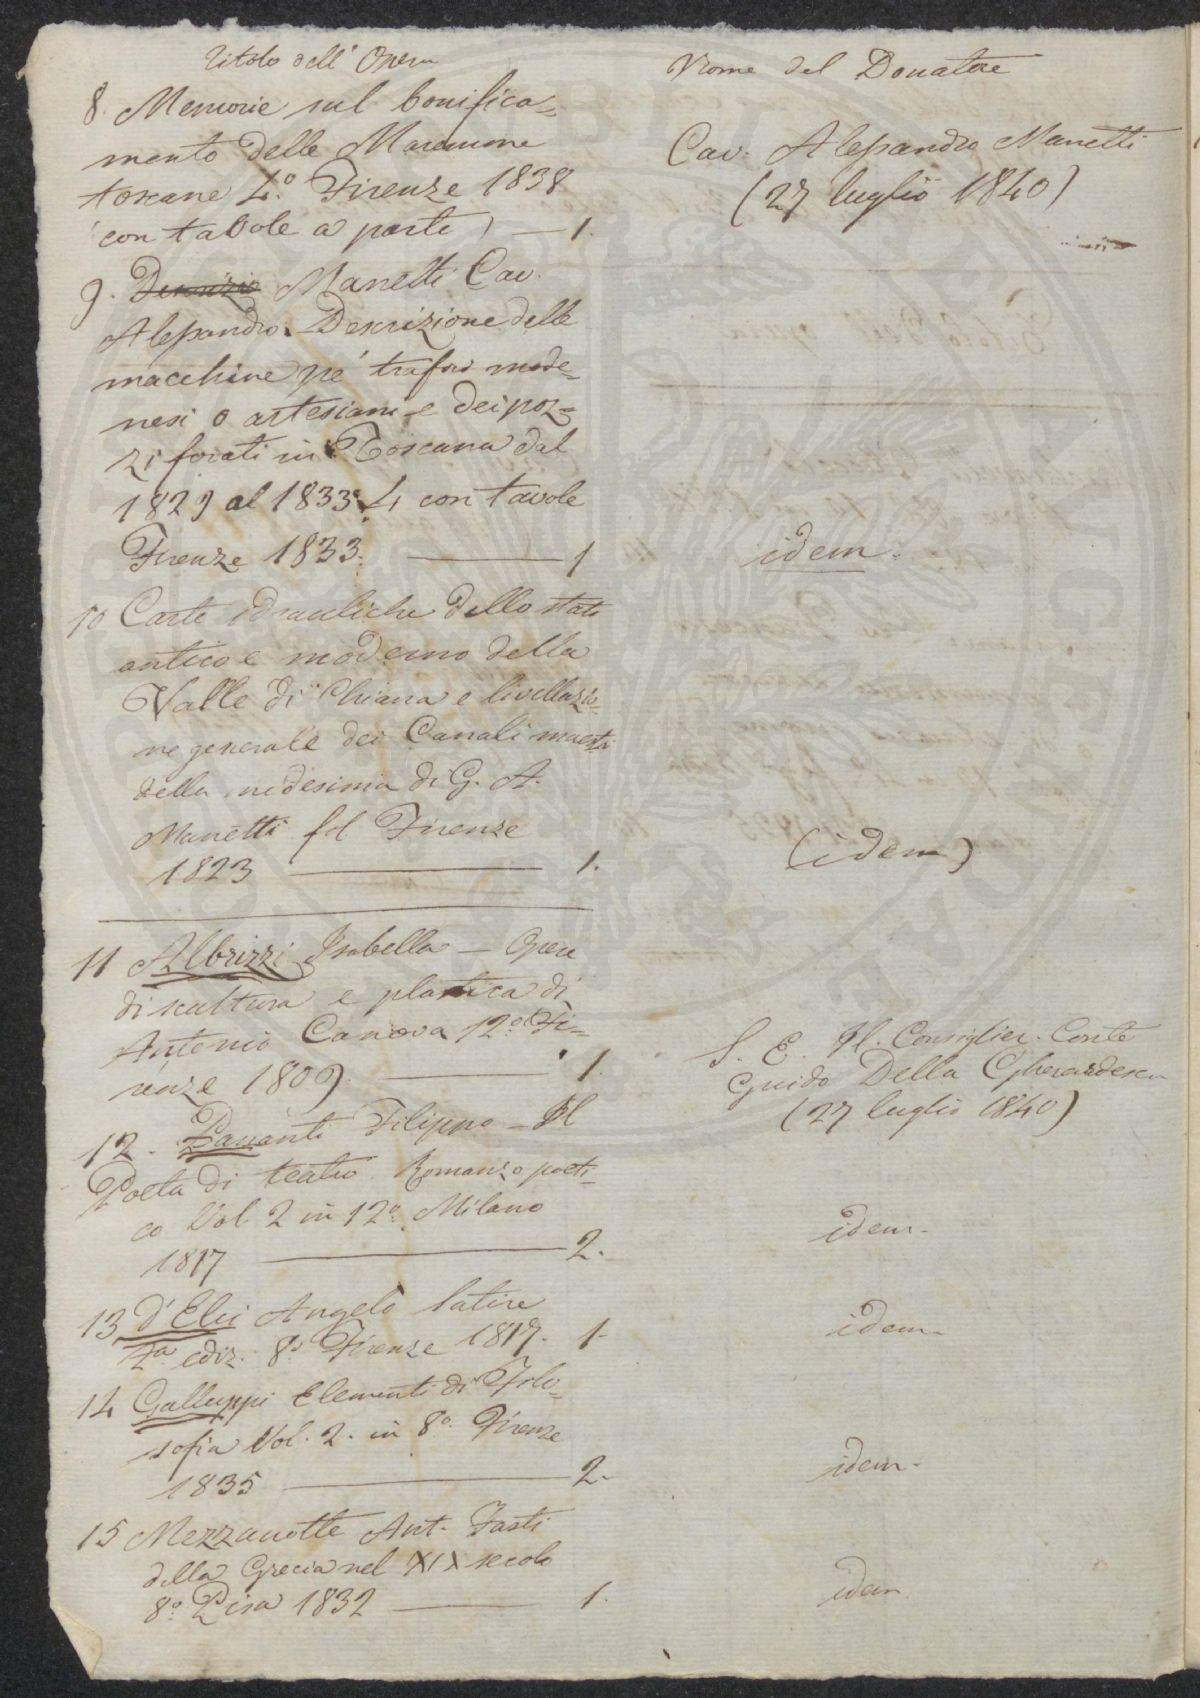 Titolo dell' Opera
Nome del Donatore
8. Memorie sul bonifica=
mento delle Maremme
toscane 4.º Firenze 1838
(con tavole a parte) — 1.
Cav. Alessandro Manetti
(27 luglio 1840)
9. Manetti Cav.
Alessandro. Descrizione delle
macchine pe' trafori mode=
nesi o artesiani e dei poz=
zi forati in Toscana dal
1829 al 1833. 4 con tavole
Firenze 1833. — 1
idem.
10 Carte idrauliche dello stato
antico e moderno della
Valle di Chiana e livellazio=
ne generale dei Canali maestri
della medesima di G. A.
Manetti fol Firenze
1823 — 1.
(idem)
11 Albrizzi Isabella — Opere
di scultura e plastica di
Antonio Canova 12.º Fi=
renze 1809 — 1.
S. E. Il Consiglier. Conte
Guido Della Gherardesca
(27 luglio 1840)
12. Pananti Filippo — Il
Poeta di teatro Romanzo poeti=
co Vol. 2 in 12.º Milano
1817 — 2.
idem.
13 d'Elci Angelo Satire
2ª ediz. 8.º Firenze 1817. 1.
idem.
14 Galluppi Elementi di Filo=
sofia Vol. 2. in 8.º Firenze
1835 — 2.
idem.
15 Mezzanotte Ant. Fasti
della Grecia nel XIX secolo
8.º Pisa 1832 — 1.
idem